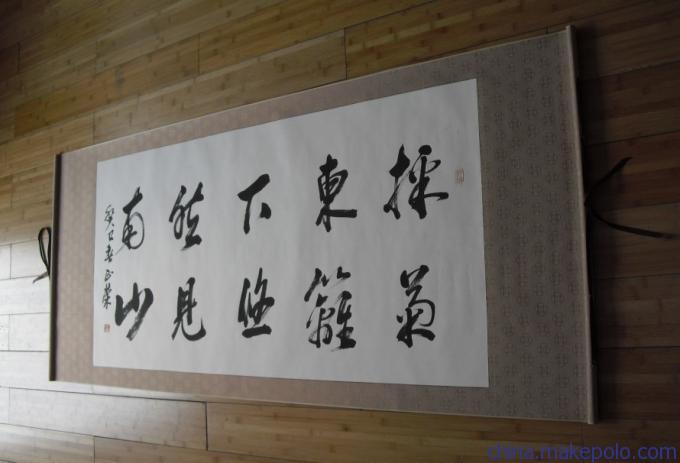 採菊
東籬
下悠
然見
南山
癸巳春正榮
china.makepolo.com